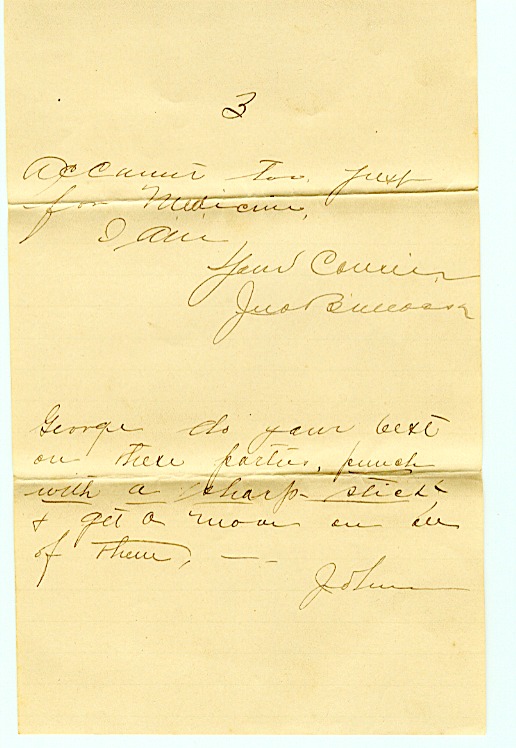 3
Account too, just
for Medicine,
I am
Your Cousin,
Jno
George do your best
on these parties, punch
with a sharp stick
& get a move on all
of them, —
John